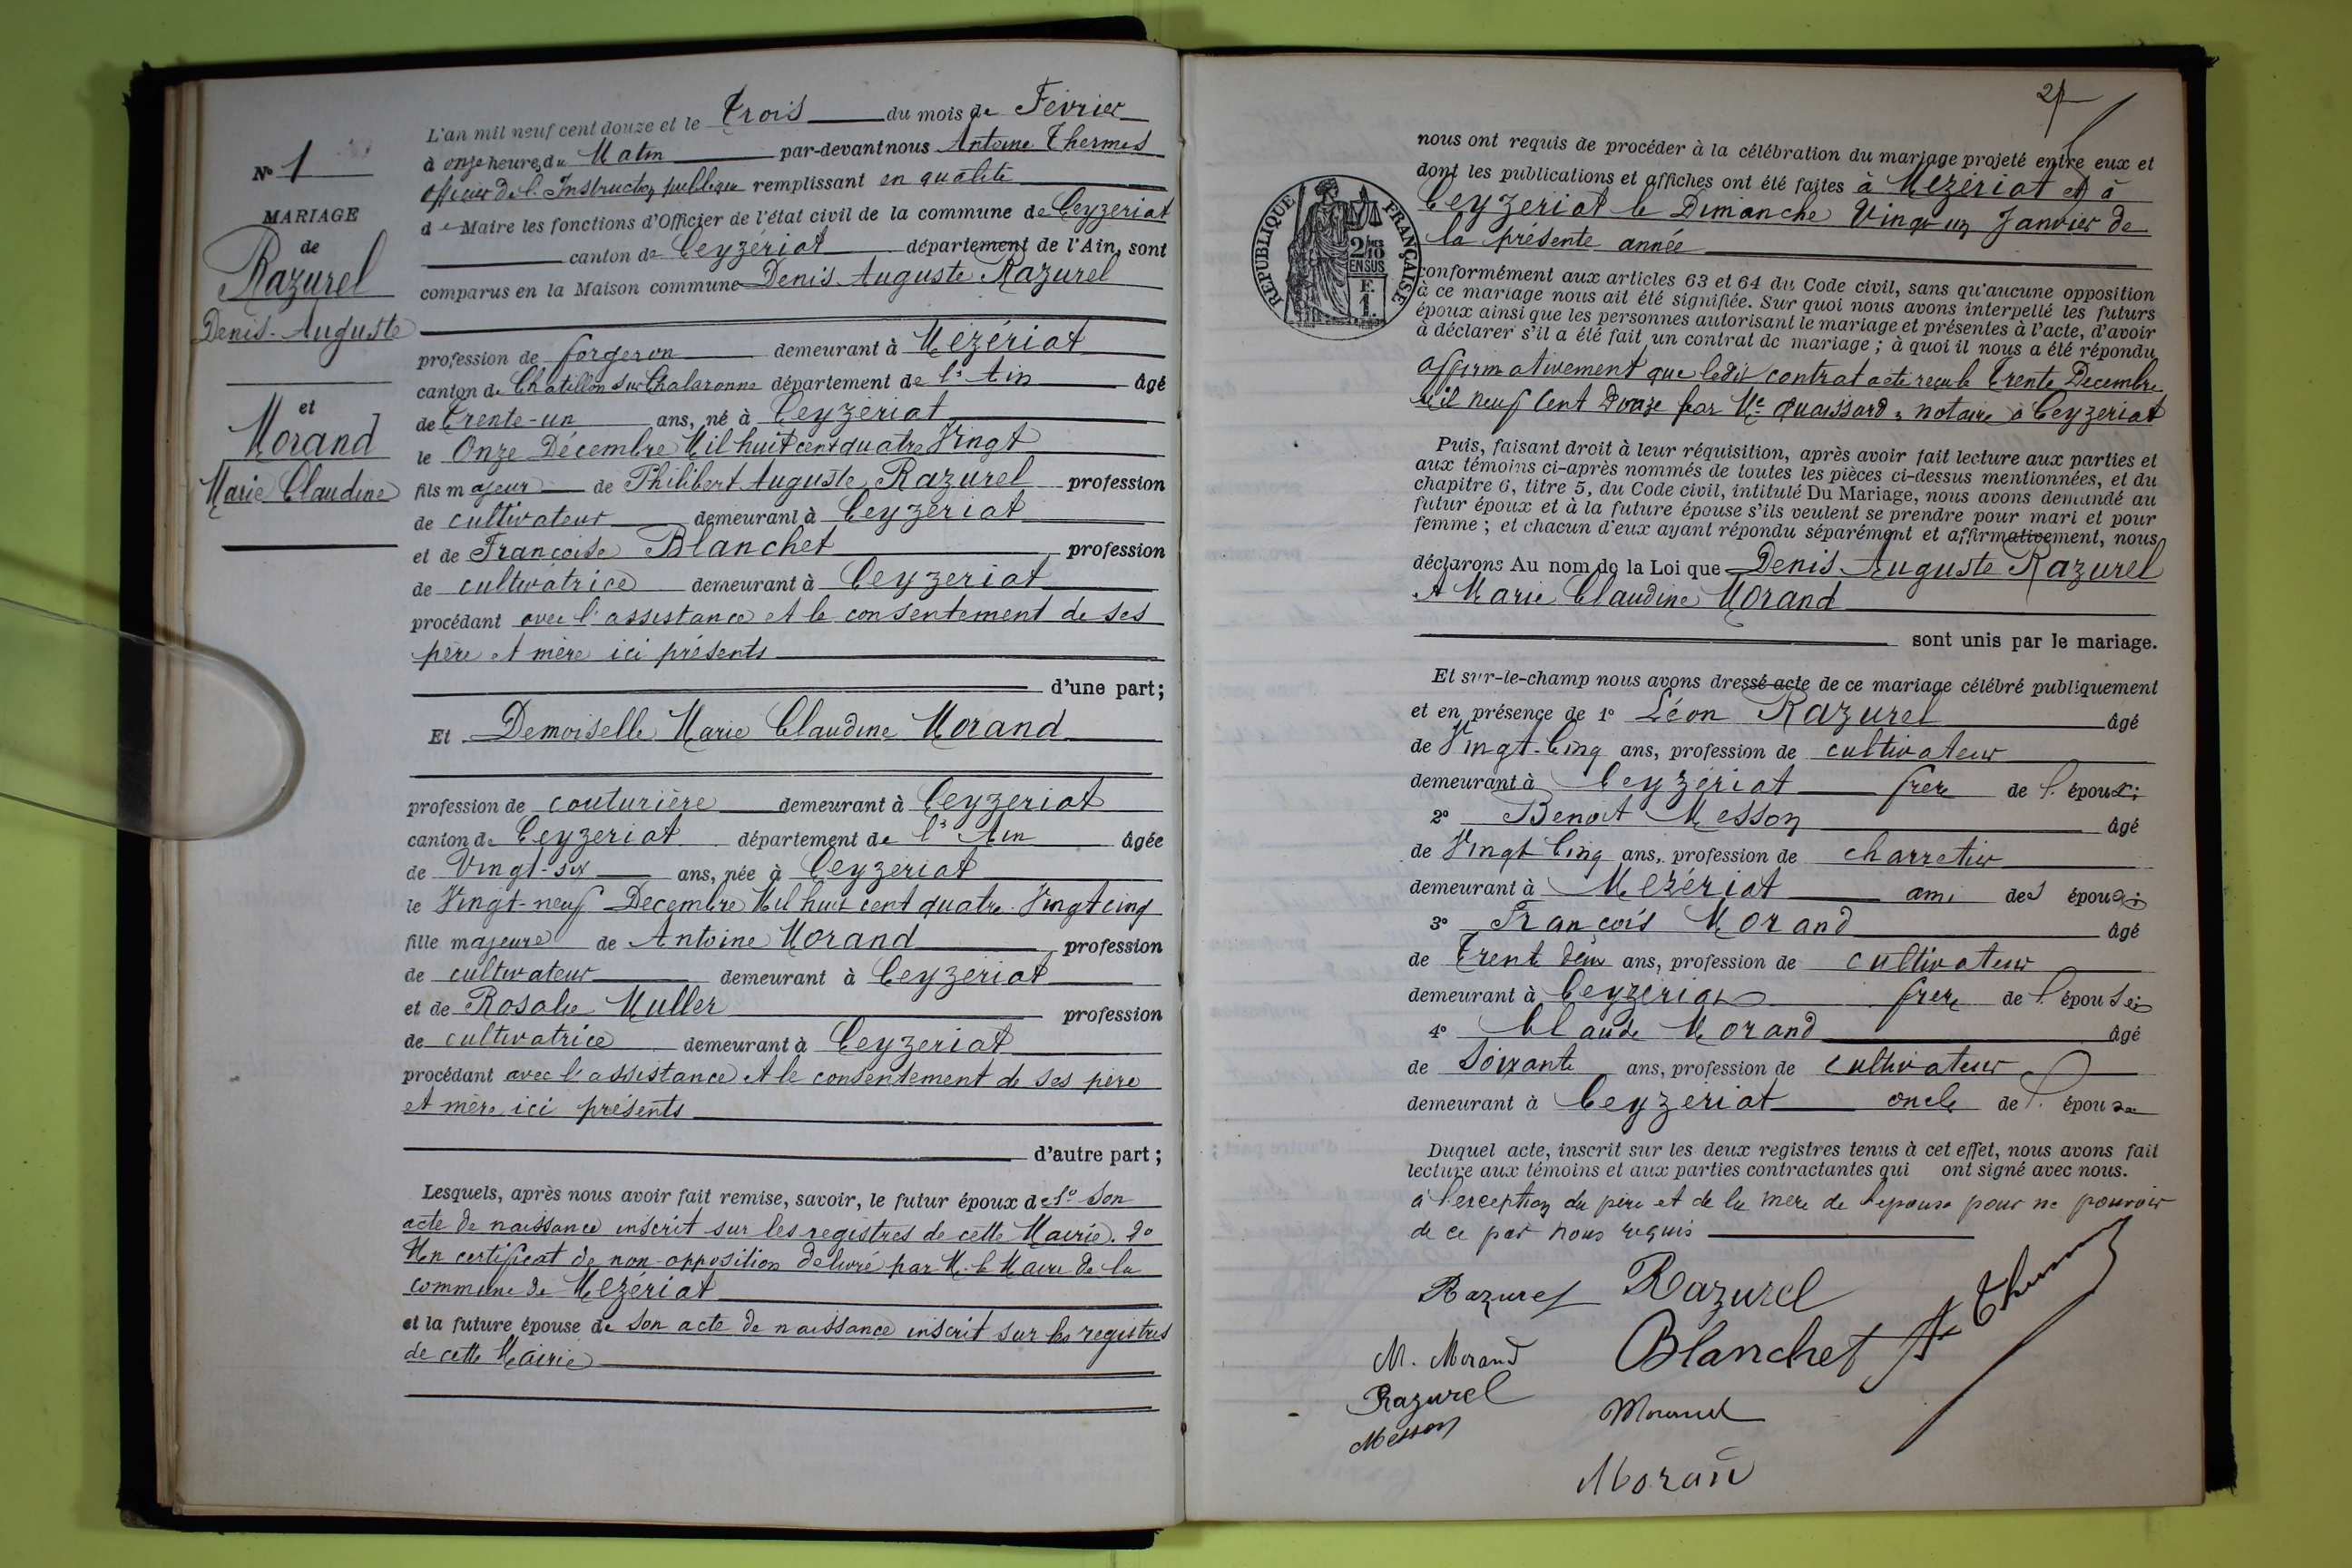 N° 1
MARIAGE
de
Razurel
Denis-Auguste
et
Morand
Marie Claudine
L'an mil neuf cent douze et le Trois du mois de Février
à onze heures du Matin par-devant nous Antoine Thermes
officier de l'Instruction publique remplissant en qualité
de Maire les fonctions d'Officier de l'état civil de la commune de Ceyzeriat
canton de Ceyzériat département de l'Ain, sont
comparus en la Maison commune Denis Auguste Razurel
profession de forgeron demeurant à Mézériat
canton de Chatillon sur Chalaronne département de l'Ain âgé
de Trente-un ans, né à Ceyzériat
le Onze Décembre Mil huit cent quatre Vingt
fils majeur de Philibert Auguste Razurel profession
de cultivateur demeurant à Ceyzériat
et de Françoise Blanchet profession
de cultivatrice demeurant à Ceyzeriat
procédant avec l'assistance et le consentement de ses
père et mère ici présents
d'une part;
Et Demoiselle Marie Claudine Morand
profession de couturière demeurant à Ceyzeriat
canton de Ceyzeriat département de l'Ain âgée
de Vingt-six ans, née à Ceyzeriat
le Vingt-neuf Decembre Mil huit cent quatre Vingt cinq
fille majeure de Antoine Morand profession
de cultivateur demeurant à Ceyzeriat
et de Rosalie Muller profession
de cultivatrice demeurant à Ceyzeriat
procédant avec l'assistance et le consentement de ses père
et mère ici présents
d'autre part;
Lesquels, après nous avoir fait remise, savoir, le futur époux de 1° son
acte de naissance inscrit sur les registres de cette Mairie. 2°
Un certificat de non-opposition délivré par M. le Maire de la
commune de Mézériat
et la future épouse de son acte de naissance inscrit sur les registres
de cette Mairie
2
nous ont requis de procéder à la célébration du mariage projeté entre eux et
dont les publications et affiches ont été faites à Mézériat et à
Ceyzeriat le Dimanche Vingt un Janvier de
la présente année
RÉPUBLIQUE FRANÇAISE
2/10
EN SUS
F.
1.
conformément aux articles 63 et 64 du Code civil, sans qu'aucune opposition
à ce mariage nous ait été signifiée. Sur quoi nous avons interpellé les futurs
époux ainsi que les personnes autorisant le mariage et présentes à l'acte, d'avoir
à déclarer s'il a été fait un contrat de mariage; à quoi il nous a été répondu
affirmativement que ledit contrat a été reçu le Trente Decembre
Mil neuf Cent Douze par Me Quaissard, notaire à Ceyzeriat
Puis, faisant droit à leur réquisition, après avoir fait lecture aux parties et
aux témoins ci-après nommés de toutes les pièces ci-dessus mentionnées, et du
chapitre 6, titre 5, du Code civil, intitulé Du Mariage, nous avons demandé au
futur époux et à la future épouse s'ils veulent se prendre pour mari et pour
femme; et chacun d'eux ayant répondu séparément et affirmativement, nous
déclarons Au nom de la Loi que Denis Auguste Razurel
et Marie Claudine Morand
sont unis par le mariage.
Et sur-le-champ nous avons dressé acte de ce mariage célébré publiquement
et en présence de 1° Léon Razurel âgé
de Vingt-Cinq ans, profession de cultivateur
demeurant à Ceyzériat frère de l'époux;
2° Benoit Messon âgé
de Vingt Cinq ans, profession de charretier
demeurant à Mézériat ami des époux;
3° François Morand âgé
de Trent deux ans, profession de cultivateur
demeurant à Ceyzeriat frère de l'épouse;
4° Claude Morand âgé
de Soixante ans, profession de cultivateur
demeurant à Ceyzériat oncle de l'épouse
Duquel acte, inscrit sur les deux registres tenus à cet effet, nous avons fait
lecture aux témoins et aux parties contractantes qui ont signé avec nous.
à l'exception du père et de la mère de l'épouse pour ne pouvoir
de ce par nous requis
Razurel Razurel
M. Morand Blanchet At Thermes
Razurel
Messon Morand
Morand